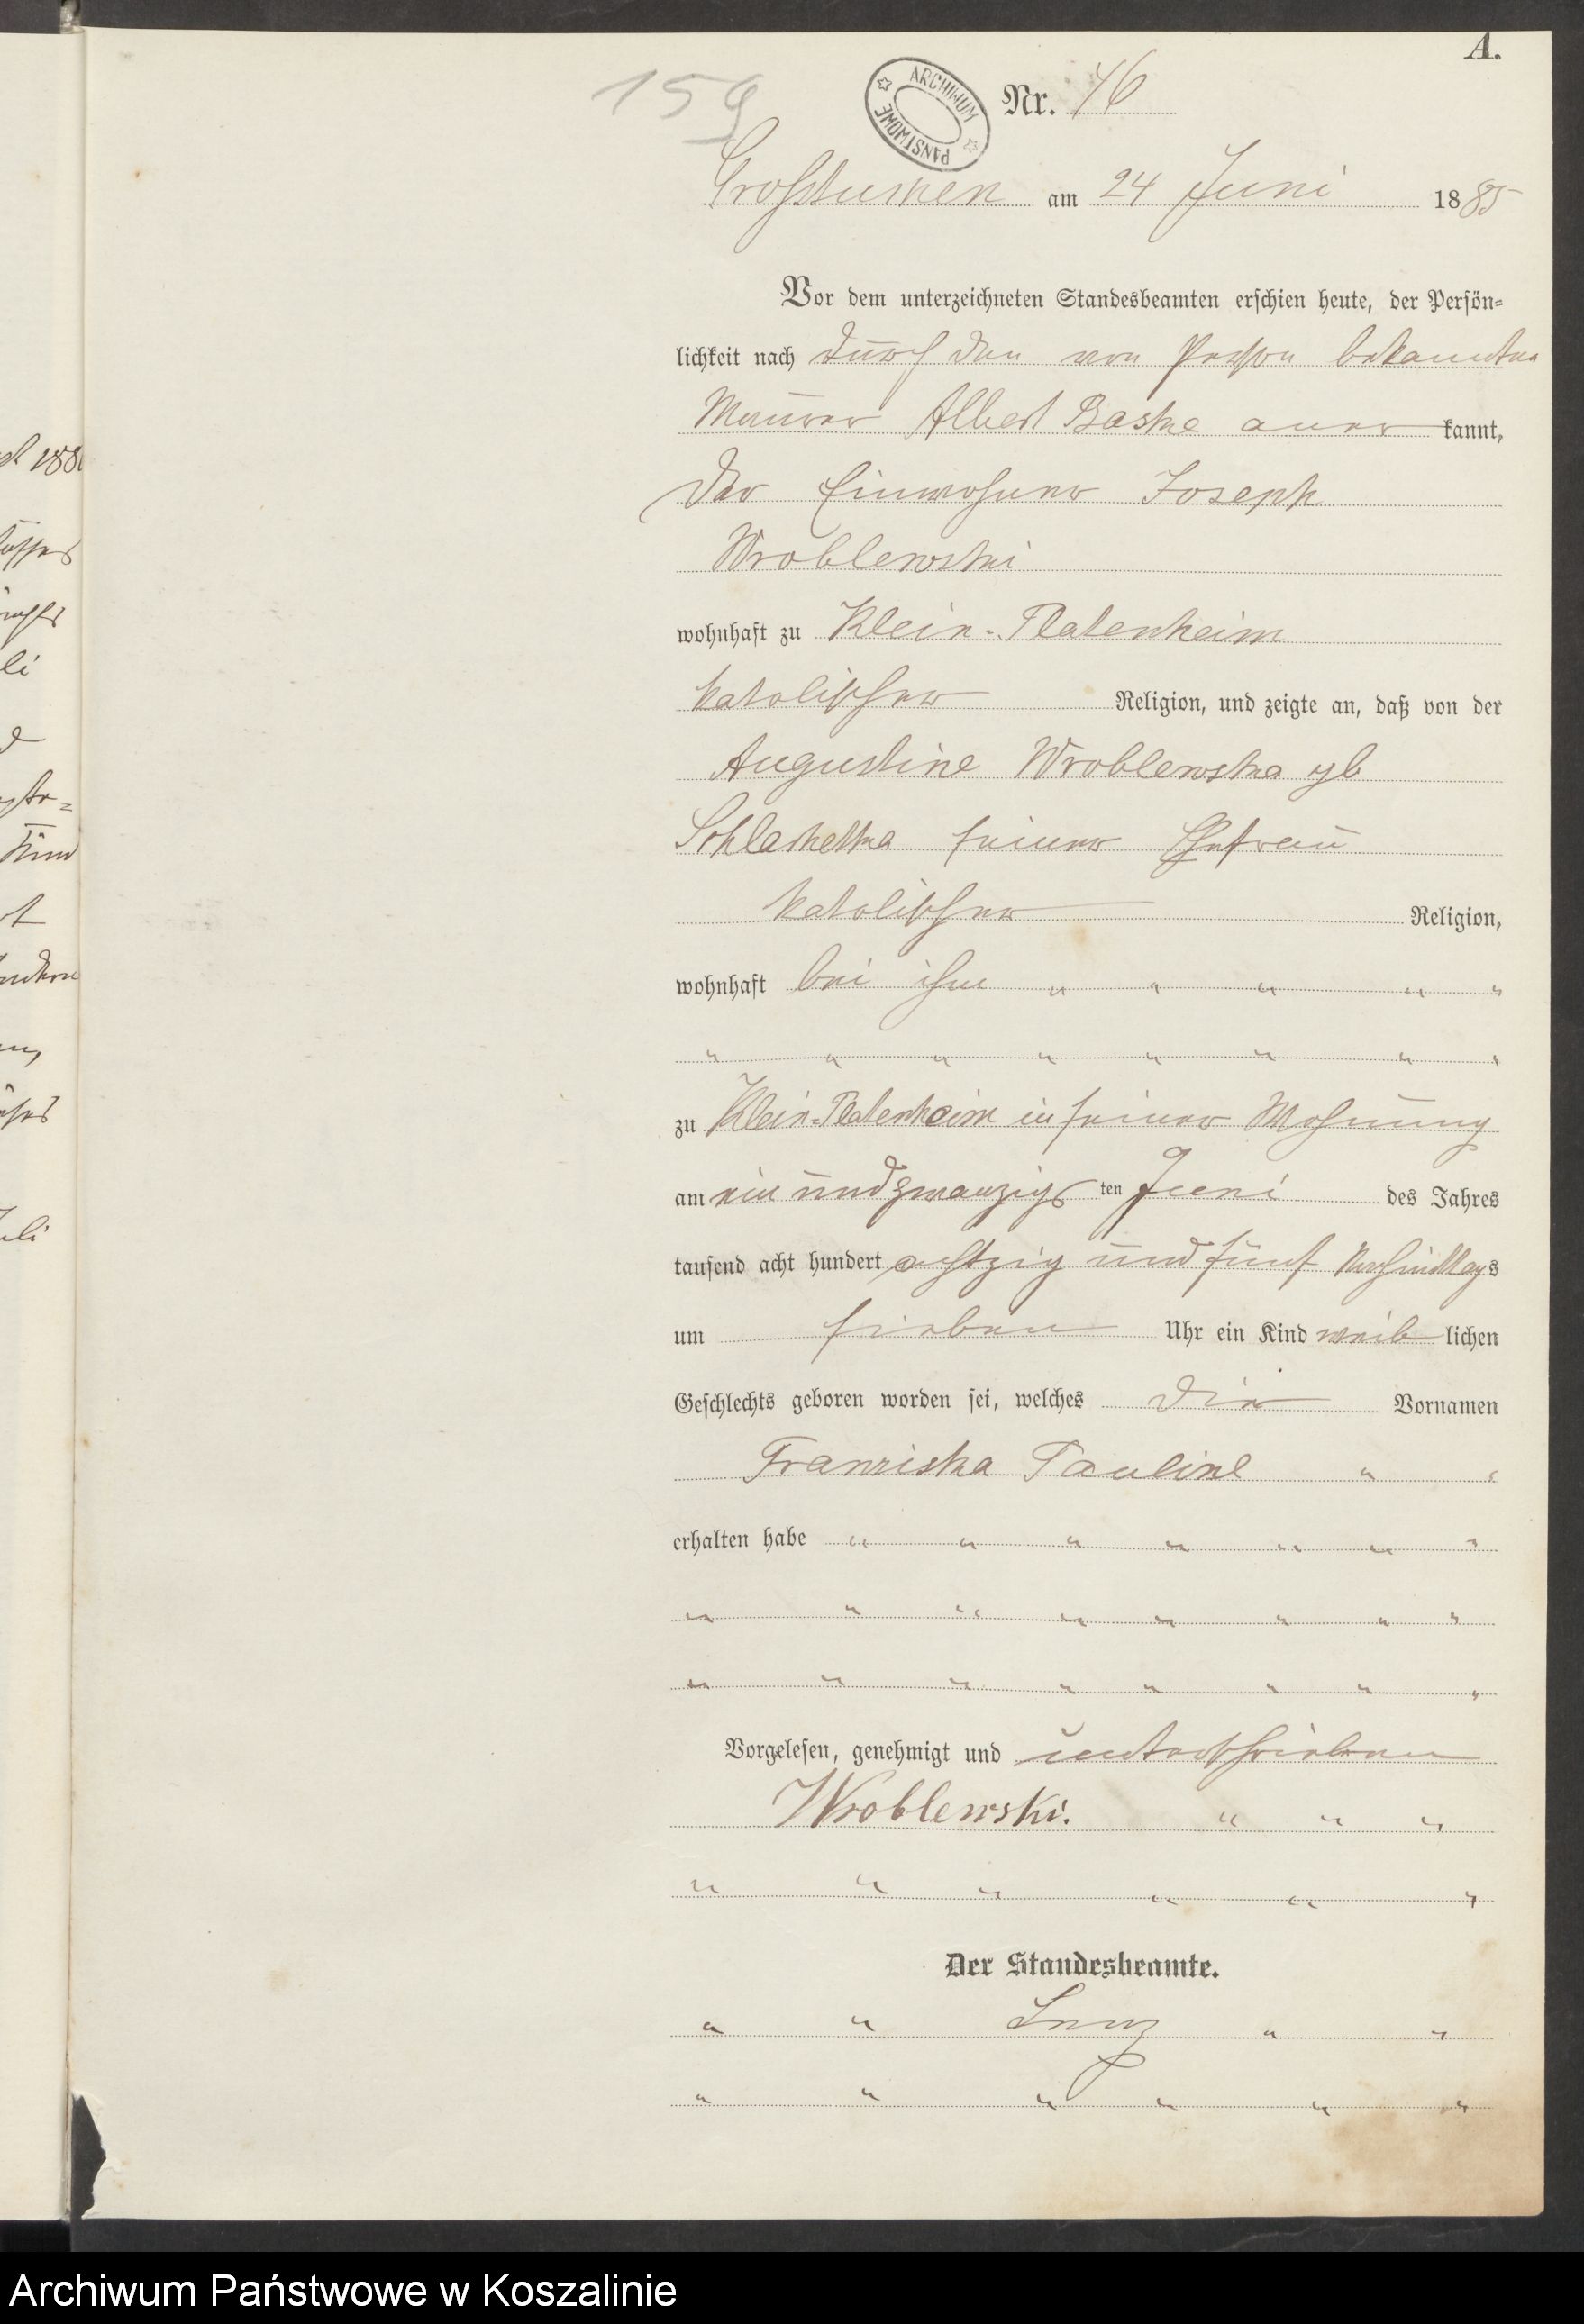 A.
159
ARCHIWUM PAŃSTWOWE
Nr. 46
Grosstuchen am 24 Juni 1885
Vor dem unterzeichneten Standesbeamten erschien heute, der Persön=
lichkeit nach durch den von Person bekannten
Maurer Albert Baske aner kannt,
der Einwohner Joseph
Wroblewski
wohnhaft zu Klein-Platenheim
katolischer Religion, und zeigte an, daß von der
Augustine Wroblewska gb
seiner Ehefrau
katolischer Religion,
wohnhaft bei ihm " " " " "
" " " " " " " "
zu Klein-Platenheim in seiner Wohnung
am ein und zwanzigs ten Juni des Jahres
tausend acht hundert achtzig und fünf Nachmittags
um sieben Uhr ein Kind weib lichen
Geschlechts geboren worden sei, welches die Vornamen
Franziska Pauline " "
erhalten habe " " " " " " "
" " " " " " " "
" " " " " " " "
Vorgelesen, genehmigt und unterschrieben
Wroblewski. " " "
" " " " " "
Der Standesbeamte.
" " " "
" " " " " "
li
Archiwum Państwowe w Koszalinie